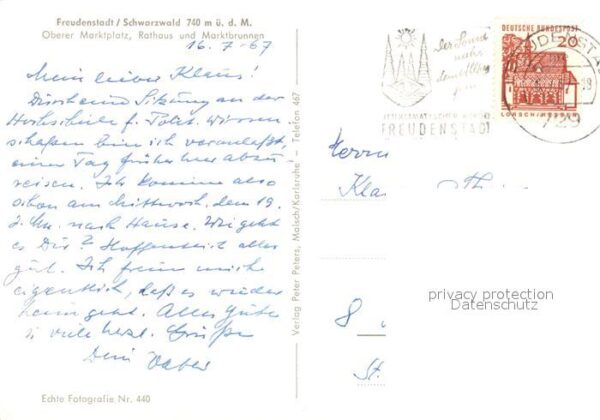 Freudenstadt / Schwarzwald 740 m ü. d. M.
Oberer Marktplatz, Rathaus und Marktbrunnen
16. 7. 67
Mein lieber Klaus!
Durch eine Sitzung an der
Hochschule f. Polit. Wissen
schaften bin ich veranlaßt,
einen Tag früher hier abzu
reisen. Ich komme also
schon am Mittwoch, dem 19.
nach Hause. Wie geht
es Dir? Hoffentlich alles
gut. Ich freue mich
eigentlich, daß es wieder
heim geht. Alles Gute
u. viele herzl. Grüße
Dein Vater
Echte Fotografie Nr. 440
Verlag Peter Peters, Malsch/Karlsruhe - Telefon 467
Der Sonne
mehr
dem Alltag
fern
FREUDENSTADT
DEUTSCHE BUNDESPOST
20
LORSCH/HESSEN
729
Herrn
Kla
th
8
St.
privacy protection
Datenschutz